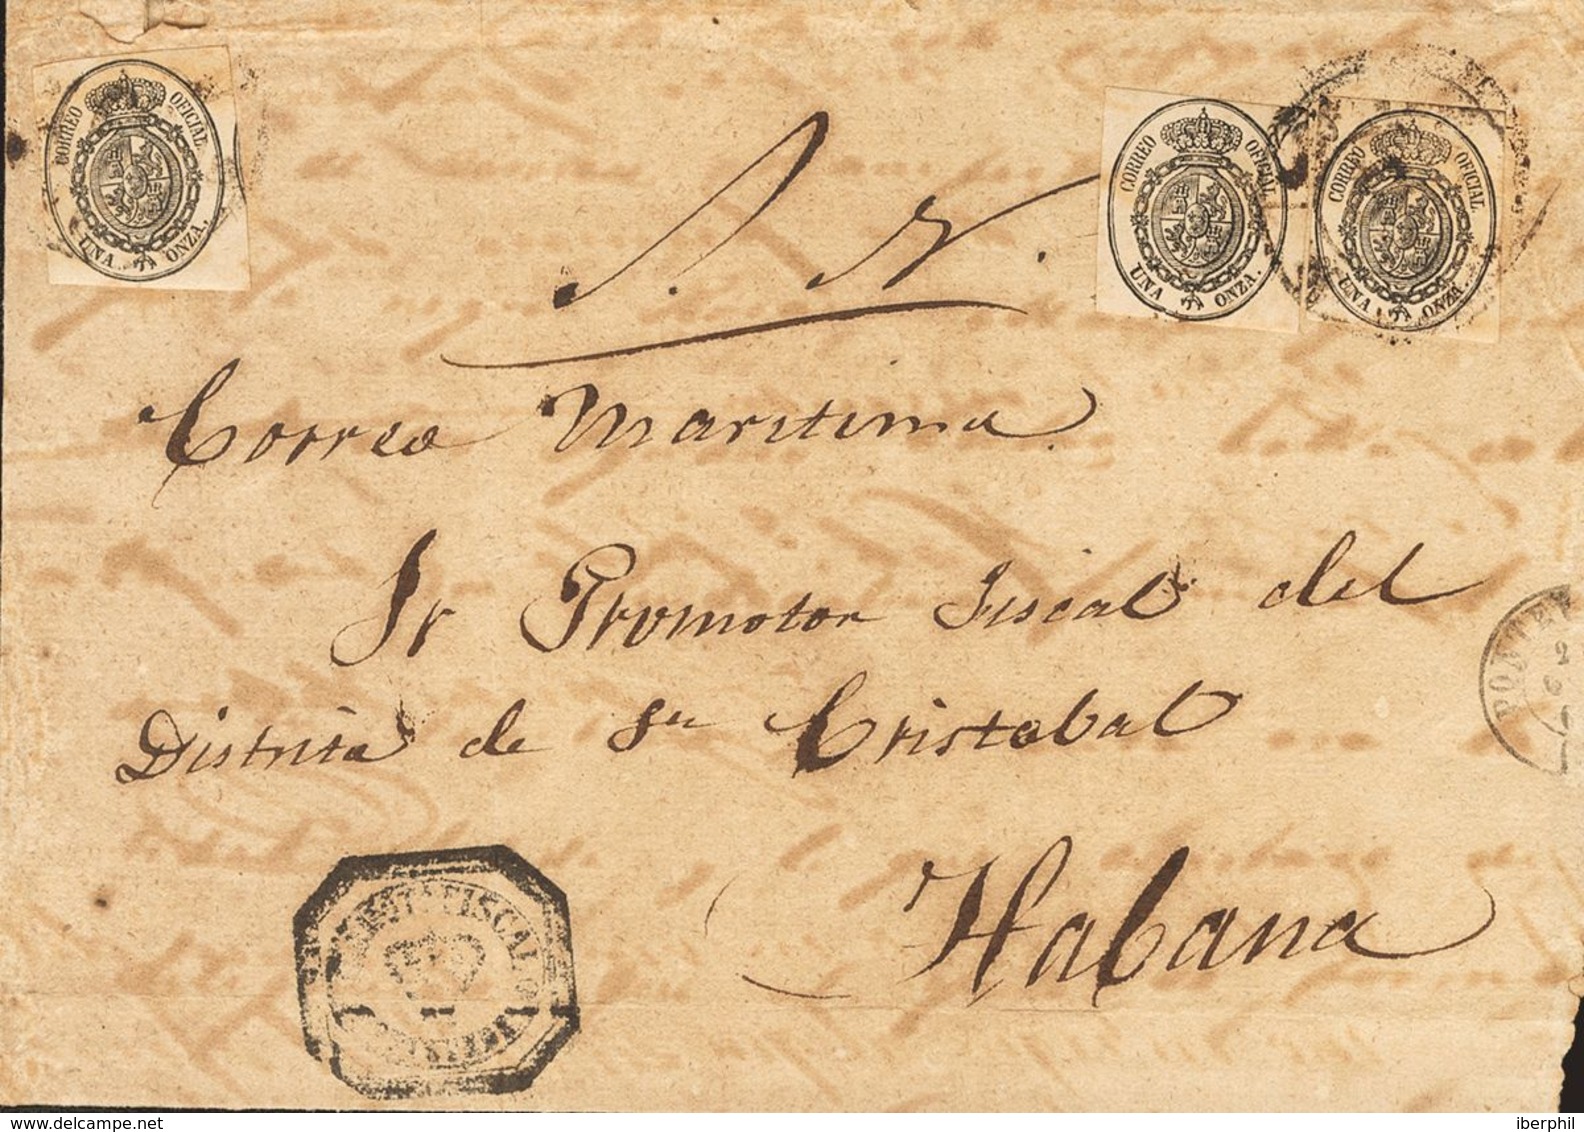 CORREO OFICIAL.
UNA ONZA.
CORREO OFICIAL
UNA ONZA.
CORREO OFICIAL
UNA ONZA.
S. N.
Correo Maritima
Sr Promotor Fiscal del
Distrito de Sn Cristobal
Habana
FISCAL
www.delcampe.net
iberphil